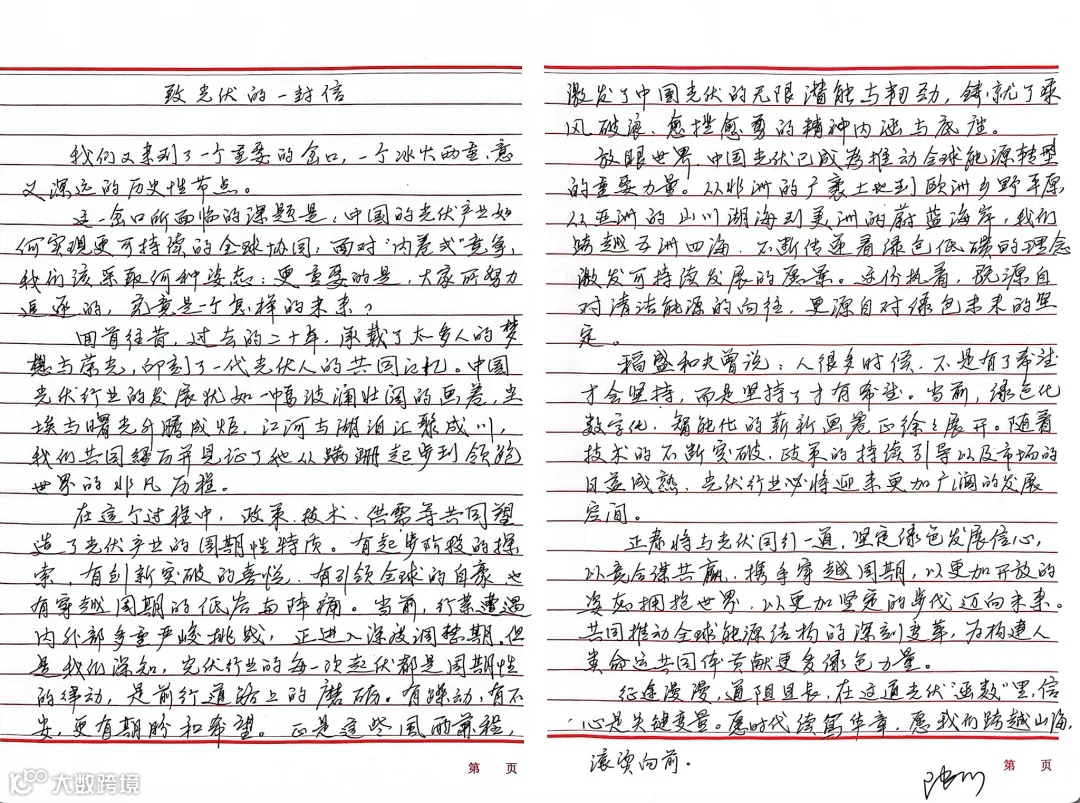 致光伏的一封信
我们又来到了一个重要的窗口，一个冰火两重、意
义深远的历史性节点。
这一窗口所面临的课题是：中国的光伏产业如
何实现更可持续的全球协同；面对“内卷式”竞争，
我们该采取何种姿态；更重要的是，大家所努力
追逐的，究竟是一个怎样的未来？
回首往昔，过去的二十年，承载了太多人的梦
想与荣光，印刻了一代光伏人的共同记忆。中国
光伏行业的发展犹如一幅波澜壮阔的画卷，尘
埃与曙光升腾成炬，江河与湖泊汇聚成川，
我们共同经历并见证了她从蹒跚起步到领跑
世界的非凡历程。
在这个过程中，政策、技术、供需等共同塑
造了光伏产业的周期性特质。有起步阶段的探
索，有创新突破的喜悦，有引领全球的自豪，也
有穿越周期的低谷与阵痛。当前，行业遭遇
内外部多重严峻挑战，正进入深度调整期。但
是我们深知，光伏行业的每一次起伏都是周期性
的律动，是前行道路上的磨砺。有躁动，有不
安，更有期盼和希望。正是这些风雨兼程，
第 页
激发了中国光伏的无限潜能与韧劲，铸就了乘
风破浪、愈挫愈勇的精神内涵与底座。
放眼世界，中国光伏已成为推动全球能源转型
的重要力量。从非洲的广袤土地到欧洲乡野平原，
从亚洲的山川湖海到美洲的蔚蓝海岸，我们
跨越五洲四海，不断传递着绿色低碳的理念
激发可持续发展的愿景。这份执着，既源自
对清洁能源的向往，更源自对绿色未来的坚
定。
稻盛和夫曾说：人很多时候，不是有了希望
才会坚持，而是坚持了才有希望。当前，绿色化
数字化、智能化的崭新画卷正徐徐展开。随着
技术的不断突破、政策的持续引导以及市场的
日益成熟，光伏行业必将迎来更加广阔的发展
空间。
正泰将与光伏同引一道，坚定绿色发展信心，
以竞合谋共赢，携手穿越周期，以更加开放的
姿态拥抱世界，以更加坚定的步伐迈向未来。
共同推动全球能源结构的深刻变革，为构建人
类命运共同体贡献更多绿色力量。
征途漫漫，道阻且长，在这道光伏“函数”里，信
心是关键变量。愿时代续写华章，愿我们跨越山海，
滚烫向前。
第 页
大数跨境